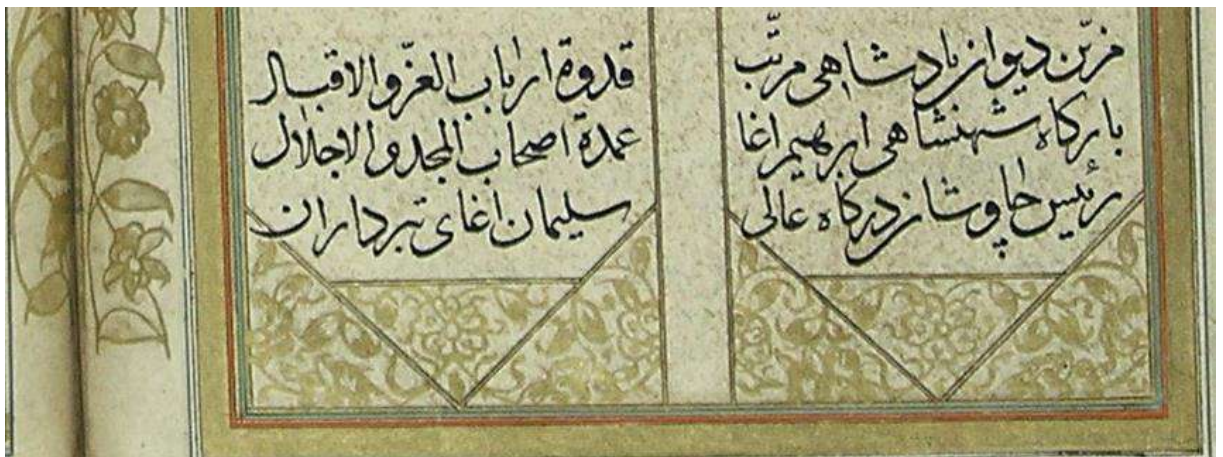 مزیّن دیوان پادشاهی مرتّب
بارکاه شهنشاهی ابرهیم اغا
رئیس چاوشان درکاه عالی
قدوة ارباب العزّ و الاقبال
عمدة اصحاب المجد و الاجلال
سلیمان اغای تبرداران